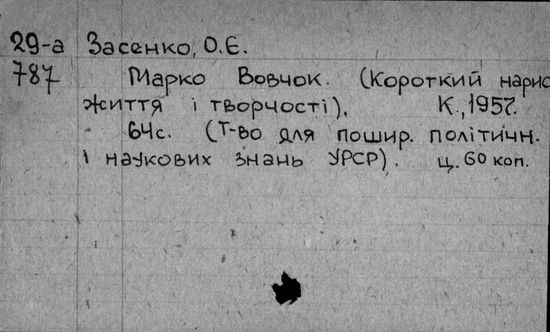 29-а Засенко, О.Є.
787 Марко Вовчок. (Короткий нарис
життя і творчості). К., 1957.
64с. (Т-во для пошир. політичн.
і наукових знань УРСР). ц. 60 коп.